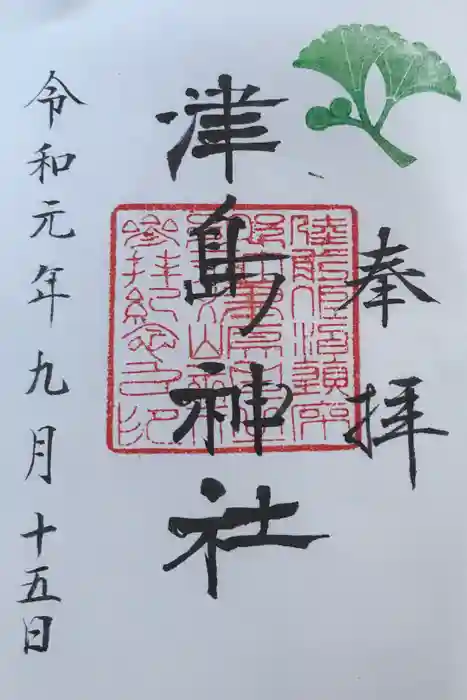 奉拝
津島神社
令和元年九月十五日